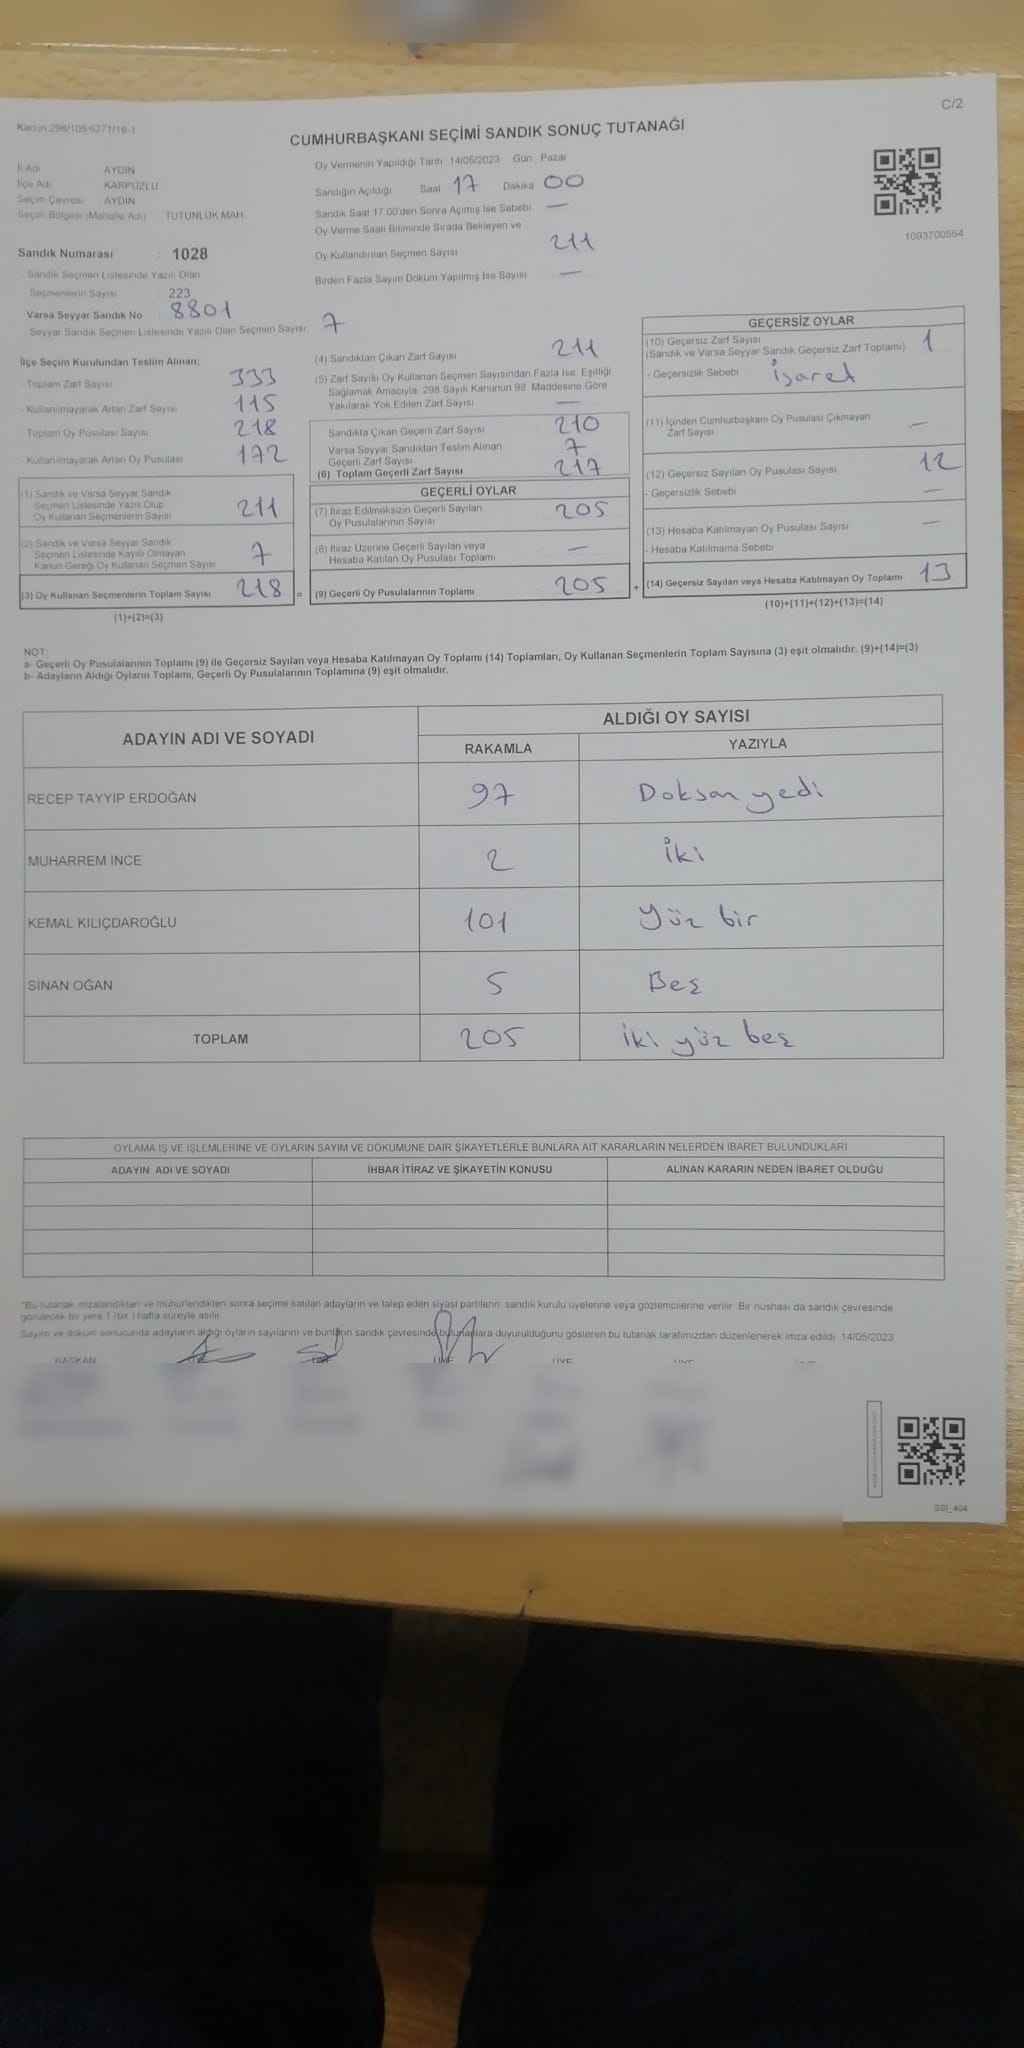 C/2
Kanun 298/105-6271/18-1
CUMHURBAŞKANI SEÇİMİ SANDIK SONUÇ TUTANAĞI
İl Adı AYDIN
İlçe Adı KARPUZLU
Seçim Çevresi AYDIN
Seçim Bölgesi (Mahalle Adı) TUTUNLUK MAH.
Sandık Numarası : 1028
Sandık Seçmen Listesinde Yazılı Olan
Seçmenlerin Sayısı 223
Varsa Seyyar Sandık No 8801
Seyyar Sandık Seçmen Listesinde Yazılı Olan Seçmen Sayısı: 7
Oy Vermenin Yapıldığı Tarih 14/05/2023 Gün: Pazar
Sandığın Açıldığı Saat 17 Dakika 00
Sandık Saat 17.00'den Sonra Açılmış İse Sebebi —
Oy Verme Saati Bitiminde Sırada Bekleyen ve
Oy Kullandırılan Seçmen Sayısı 211
Birden Fazla Sayım Döküm Yapılmış İse Sayısı —
1003700554
İlçe Seçim Kurulundan Teslim Alınan;
- Toplam Zarf Sayısı 333
- Kullanılmayarak Artan Zarf Sayısı 115
Toplam Oy Pusulası Sayısı 218
- Kullanılmayarak Artan Oy Pusulası 172
(1) Sandık ve Varsa Seyyar Sandık
Seçmen Listesinde Yazılı Olup
Oy Kullanan Seçmenlerin Sayısı 211
(2) Sandık ve Varsa Seyyar Sandık
Seçmen Listesinde Kayıtlı Olmayan
Kanun Gereği Oy Kullanan Seçmen Sayısı 7
(3) Oy Kullanan Seçmenlerin Toplam Sayısı 218 =
(1)+(2)=(3)
(4) Sandıktan Çıkan Zarf Sayısı 211
(5) Zarf Sayısı Oy Kullanan Seçmen Sayısından Fazla İse, Eşitliği
Sağlamak Amacıyla, 298 Sayılı Kanunun 98. Maddesine Göre
Yakılarak Yok Edilen Zarf Sayısı —
Sandıkta Çıkan Geçerli Zarf Sayısı 210
Varsa Seyyar Sandıktan Teslim Alınan
Geçerli Zarf Sayısı 7
(6) Toplam Geçerli Zarf Sayısı 217
GEÇERLİ OYLAR
(7) İtiraz Edilmeksizin Geçerli Sayılan
Oy Pusulalarının Sayısı 205
(8) İtiraz Üzerine Geçerli Sayılan veya
Hesaba Katılan Oy Pusulası Toplamı —
(9) Geçerli Oy Pusulalarının Toplamı 205 +
GEÇERSİZ OYLAR
(10) Geçersiz Zarf Sayısı
(Sandık ve Varsa Seyyar Sandık Geçersiz Zarf Toplamı) 1
- Geçersizlik Sebebi işaret
(11) İçinden Cumhurbaşkanı Oy Pusulası Çıkmayan
Zarf Sayısı —
(12) Geçersiz Sayılan Oy Pusulası Sayısı 12
- Geçersizlik Sebebi —
(13) Hesaba Katılmayan Oy Pusulası Sayısı —
- Hesaba Katılmama Sebebi
(14) Geçersiz Sayılan veya Hesaba Katılmayan Oy Toplamı 13
(10)+(11)+(12)+(13)=(14)
NOT:
a- Geçerli Oy Pusulalarının Toplamı (9) ile Geçersiz Sayılan veya Hesaba Katılmayan Oy Toplamı (14) Toplamları, Oy Kullanan Seçmenlerin Toplam Sayısına (3) eşit olmalıdır. (9)+(14)=(3)
b- Adayların Aldığı Oyların Toplamı, Geçerli Oy Pusulalarının Toplamına (9) eşit olmalıdır.
ADAYIN ADI VE SOYADI ALDIĞI OY SAYISI
RAKAMLA YAZIYLA
RECEP TAYYIP ERDOĞAN 97 Doksan yedi
MUHARREM İNCE 2 iki
KEMAL KILIÇDAROĞLU 101 Yüz bir
SİNAN OĞAN 5 Beş
TOPLAM 205 iki yüz beş
OYLAMA İŞ VE İŞLEMLERİNE VE OYLARIN SAYIM VE DÖKÜMÜNE DAİR ŞİKAYETLERLE BUNLARA AİT KARARLARIN NELERDEN İBARET BULUNDUKLARI
ADAYIN ADI VE SOYADI İHBAR İTİRAZ VE ŞİKAYETİN KONUSU ALINAN KARARIN NEDEN İBARET OLDUĞU
"Bu tutanak imzalandıktan ve mühürlendikten sonra seçime katılan adayların ve talep eden siyasi partilerin sandık kurulu üyelerine veya gözlemcilerine verilir. Bir nüshası da sandık çevresinde
görülecek bir yere 1 (bir) hafta süreyle asılır.
Sayım ve döküm sonucunda adayların aldığı oyların sayılarını ve bunların sandık çevresinde bulunanlara duyurulduğunu gösteren bu tutanak tarafımızdan düzenlenerek imza edildi. 14/05/2023
BAŞKAN ÜYE ÜYE ÜYE